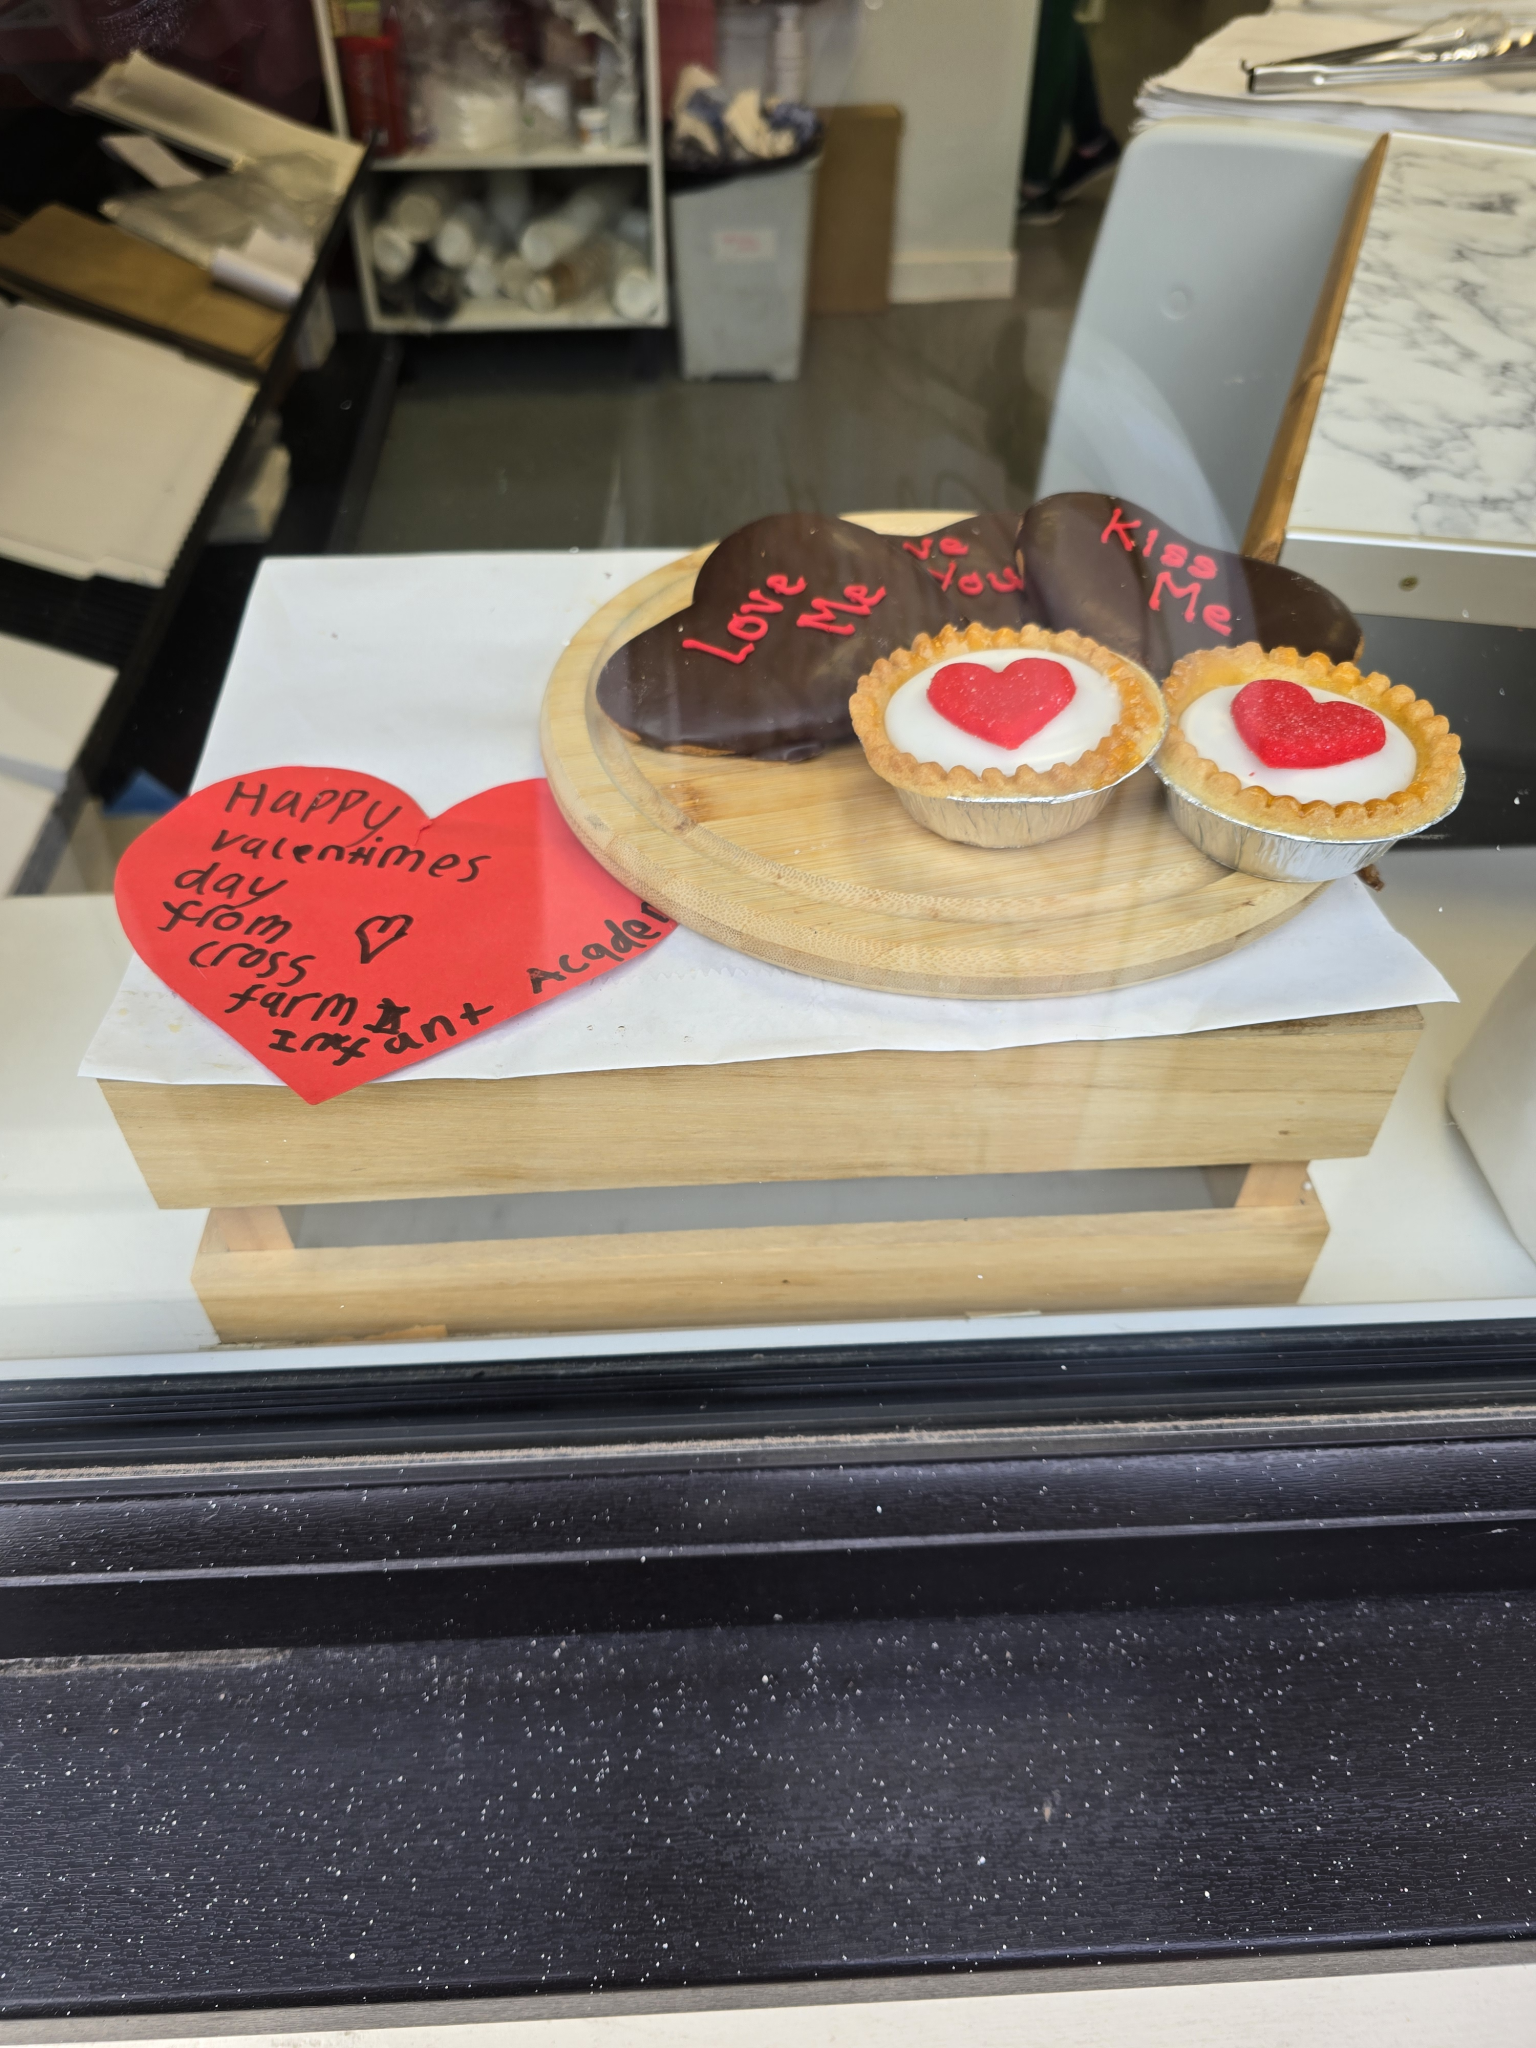 Love
Me
ve
You
Kiss
Me
Happy
valentimes
day
from
cross
farm
Infant Acade